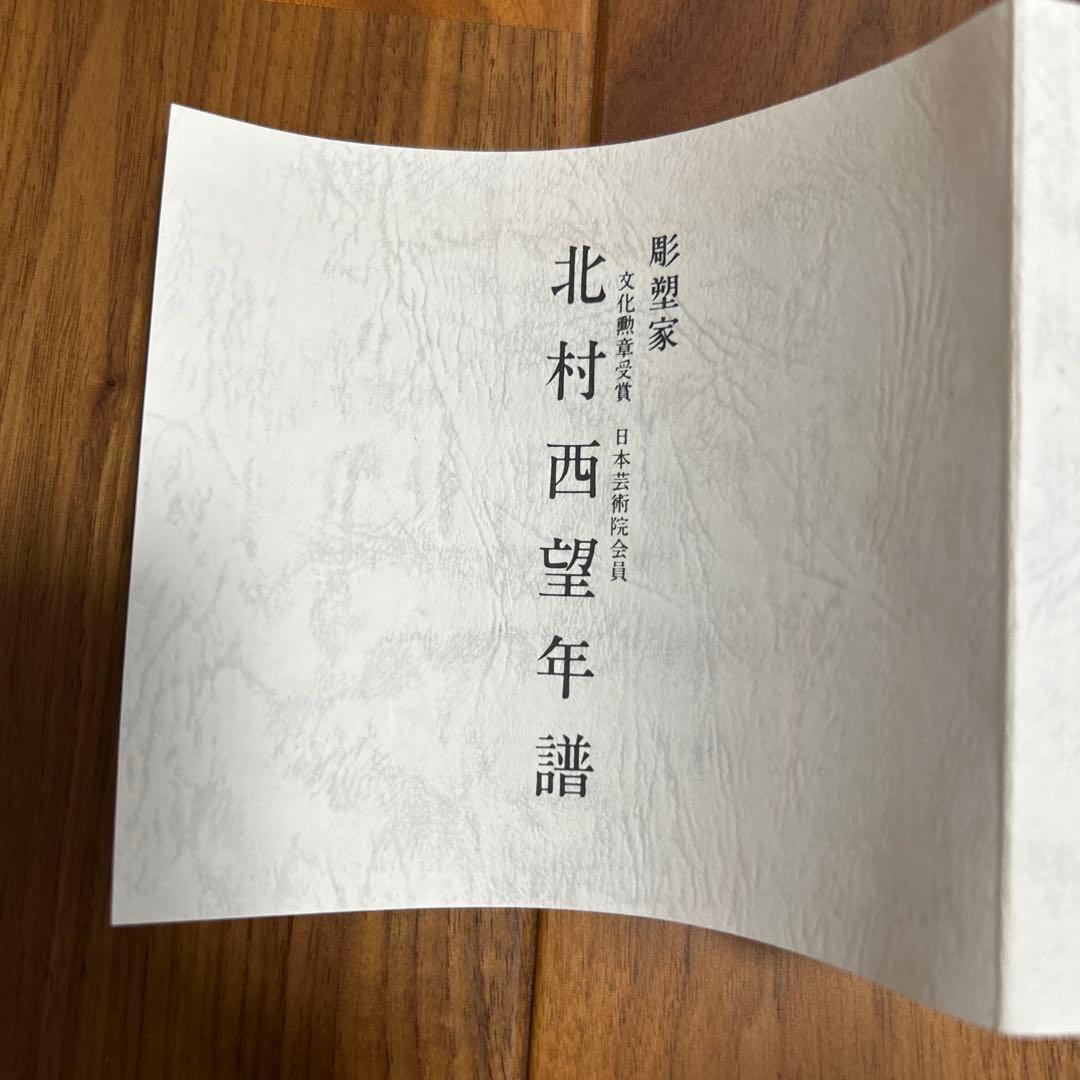 彫塑家
文化勲章受賞 日本芸術院会員
北村西望年譜